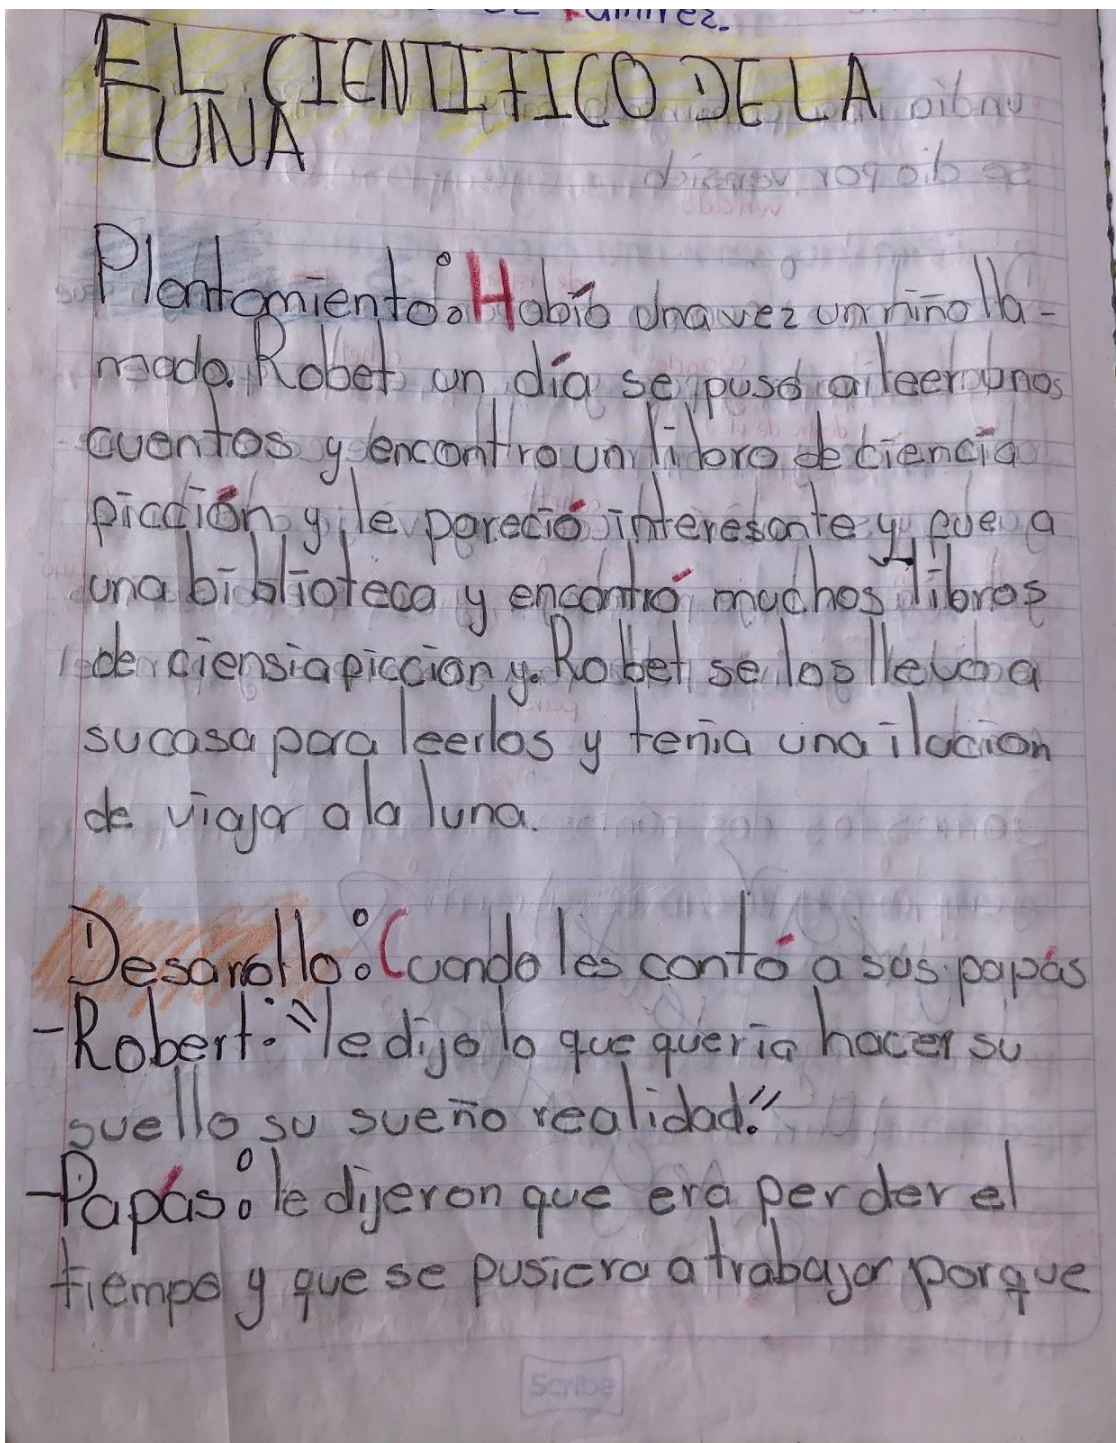 Ramirez.
EL CIENTIFICO DE LA
LUNA
Plantamiento: Había una vez un niño lla-
mado. Robet un día se puso a leer unos
cuentos y encontro un libro de ciencia
picción y le pareció interesante y fue a
una biblioteca y encontró muchos libros
de ciensia piccion y. Robet se los llevo a
su casa para leerlos y tenia una ilacion
de viajar a la luna.
Desarollo: Cuando les contó a sus papás
-Robert: "le dijo lo que queria hacer su
suello su sueño realidad."
-Papás: le dijeron que era perder el
tiempo y que se pusiera a trabajar porque
Scribe